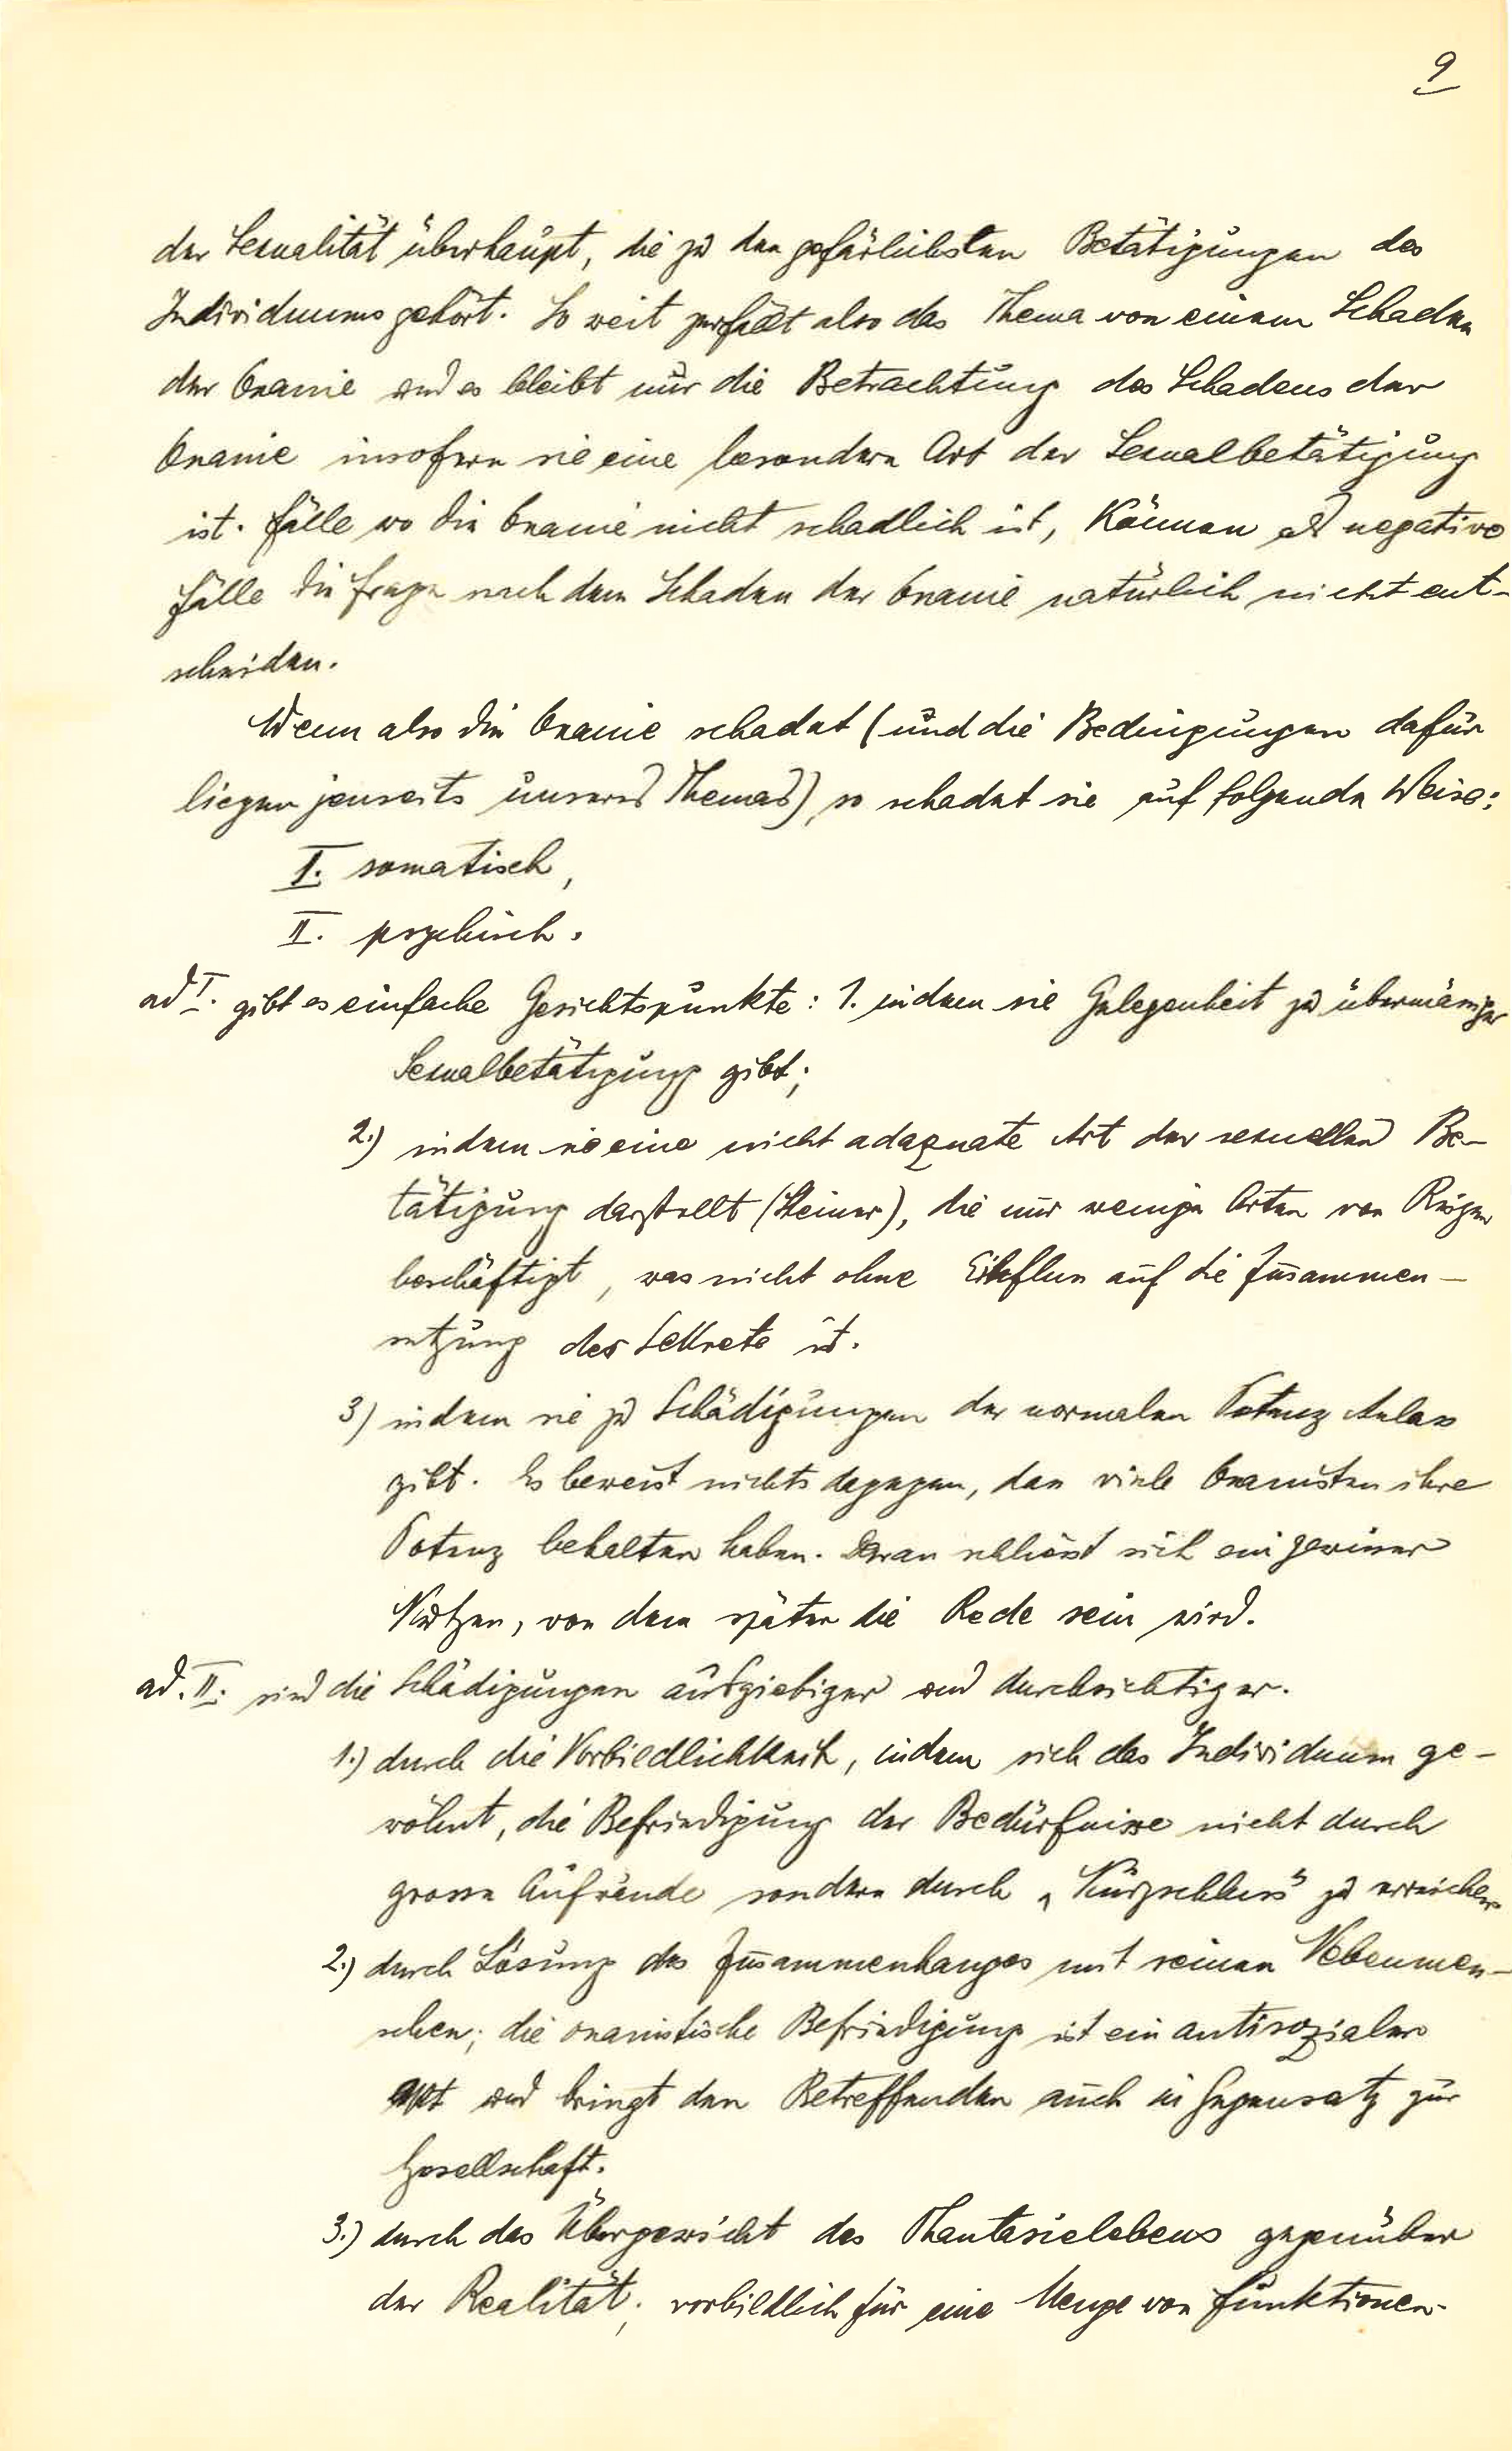 9
der Sexualität überhaupt, die zu den gefärlichsten Betätigungen des
Individuums gehört. So weit zerfällt also das Thema von einem Schaden
der Onanie und es bleibt nur die Betrachtung des Schadens der
Onanie insofern sie eine besondere Art der Sexualbetätigung
ist. Fälle wo die Onanie nicht schadlich ist, können als negative
Fälle die Frage nach dem Schaden der Onanie natürlich nicht ent-
scheiden.
Wenn also die Onanie schadet (und die Bedingungen dafür
liegen jenseits unseres Themas), so schadet sie auf folgende Weise:
I. somatisch,
II. psychisch.
ad I. gibt es einfache Gesichtspunkte: 1. indem sie Gelegenheit zu übermässiger
Sexualbetätigung gibt;
2.) indem sie eine nicht adaequate Art der sexuellen Be-
tätigung darstellt (Steiner), die nur wenige Arten von Reizen
beschäftigt, was nicht ohne Einfluss auf die Zusammen-
setzung des Sekrets ist.
3) indem sie zu Schädigungen der normalen Potenz Anlass
gibt. Es beweist nichts dagegen, dass viele Onanisten ihre
Potenz behalten haben. Daran schliesst sich ein gewisser
Nutzen, von dem später die Rede sein wird.
ad. II. sind die Schädigungen ausgiebiger und durchsichtiger.
1.) durch die Vorbildlichkeit, indem sich das Individuum ge-
wöhnt, die Befriedigung der Bedürfnisse nicht durch
grosse Aufwände sondern durch „Kurzschluss" zu erreichen
2.) durch Lösung des Zusammenhanges mit seinen Nebenmen-
schen; die onanistische Befriedigung ist ein antisozialer
Akt und bringt den Betreffenden auch in Gegensatz zur
Gesellschaft.
3.) durch das Übergewicht des Phantasielebens gegenüber
der Realität; vorbildlich für eine Menge von Funktionen.